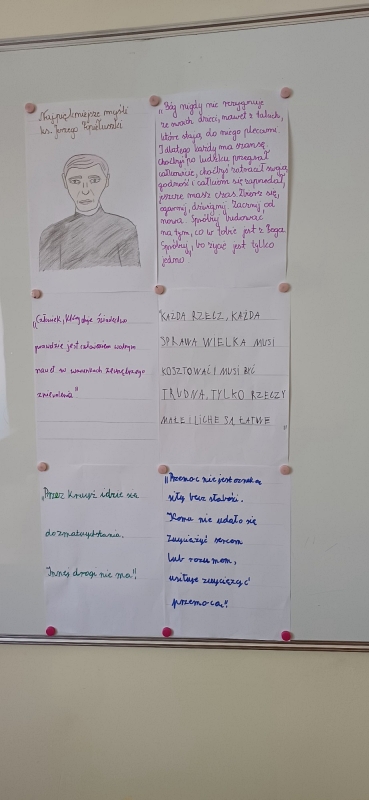 Najpiękniejsze myśli
ks. Jerzego Popiełuszki
„Bóg nigdy nie rezygnuje
ze swoich dzieci, nawet z takich,
które stają do niego plecami.
I dlatego każdy ma szansę,
choćbyś po ludzku przegrał
całkowicie, choćbyś zatracił swoją
godność i całkiem się zaprzedał,
jeszcze masz czas. Zbierz się,
ogarnij, dźwignij. Zacznij od
nowa. Spróbuj budować
na tym, co w tobie jest z Boga.
Spróbuj, bo życie jest tylko
jedno
„Człowiek, który daje świadectwo
prawdzie jest człowiekiem wolnym
nawet w warunkach zewnętrznego
zniewolenia"
KAŻDA RZECZ, KAŻDA
SPRAWA WIELKA MUSI
KOSZTOWAĆ I MUSI BYĆ
TRUDNA, TYLKO RZECZY
MAŁE I LICHE SĄ ŁATWE
"
„Przez krzyż idzie się
do zmartwychwstania.
Innej drogi nie ma".
„Przemoc nie jest oznaką
siły lecz słabości.
Komu nie udało się
zwyciężyć sercem
lub rozumem,
usiłuje zwyciężyć
przemocą".